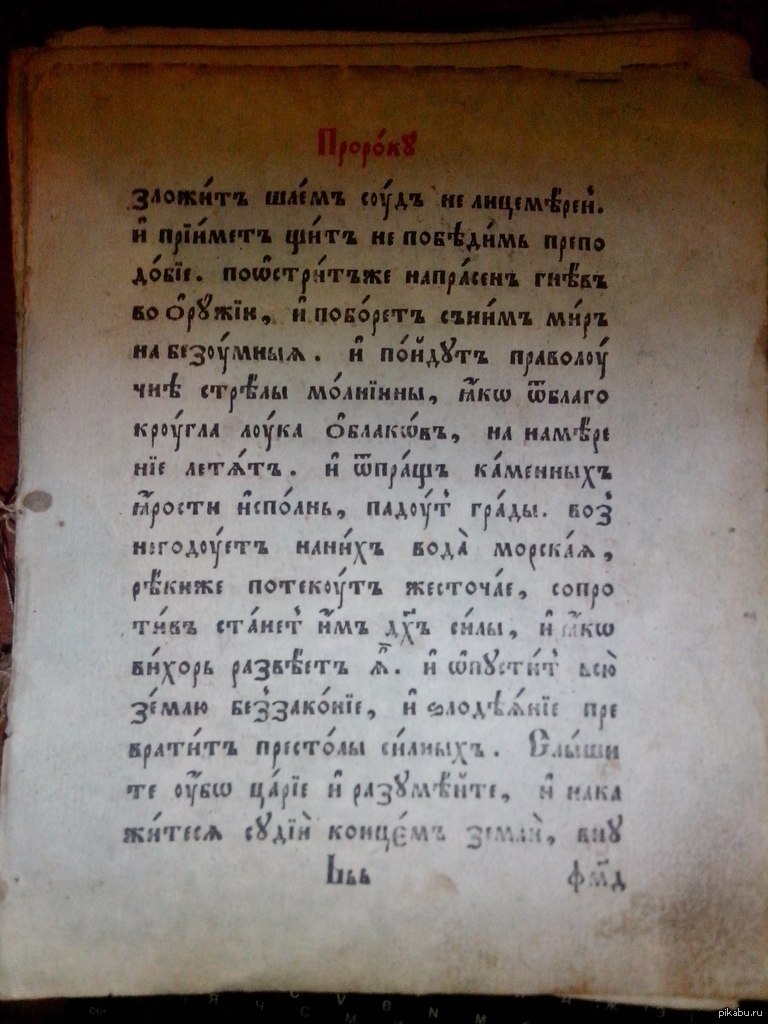 Проро́кꙋ
зложи́тъ шле́мъ соу́дъ не лицемѣ́рен̾.
и҆ прїи́метъ щи́тъ не побѣди́мь препо
до́бїе. поѡ҆стри́тъже напра́сенъ гнѣ́въ
во ѻ҆рꙋ́жїи, и҆ побо́ретъ съни́мъ ми́ръ
на безоу́мныѧ. и҆ по́йдꙋтъ праволоу́
чнѣ̀ стрѣ́лы мо́лнїины, ꙗ҆́кѡ ѿблаго
кроу́гла лоу́ка ѻ҆блакѡ́въ, на намѣ́ре
нїе летѧ́тъ. и҆ ѿпра́щъ ка́менныхъ
ꙗ҆́рости и҆спо́лнь, падоу́т̾ гра́ды. воз̾
негодоу́етъ нани́хъ вода̀ морска́ѧ,
рѣ́киже потекоу́тъ жесточа́е, сопро
ти́въ ста́нет̾ и҆̀мъ дх҃ъ си́лы, и҆ ꙗ҆́кѡ
ви́хорь развѣ́етъ ꙗ҆̀. и҆ ѡ҆пꙋсти́т̾ всю̀
зе́млю без̾зако́нїе, и҆ ѕлодѣѧ́нїе пре
врати́тъ престо́лы си́лныхъ. Слы́ши
те оу҆́бѡ ца́рїе и҆ разꙋмѣ́йте, и҆ нака
жи́тесѧ сꙋдїѝ конце́мъ землѝ, внꙋ